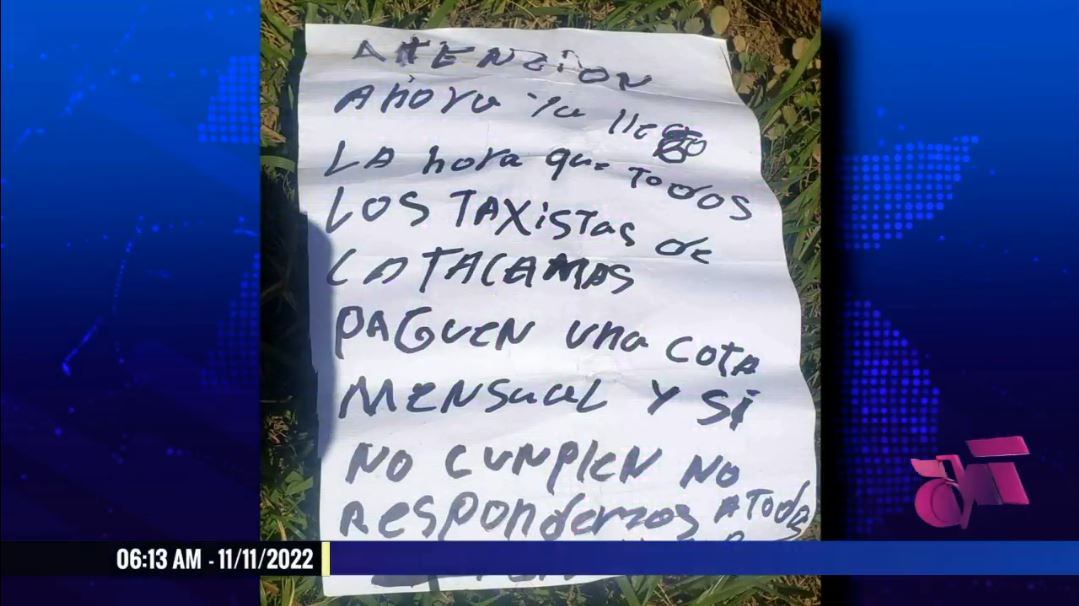 ATENZION
AHORA YA llEGO
LA hora que TODOS
LOS TAXISTAS de
CATACAMAS
PAGUEN una COTA
MENSUAL Y Si
NO CUNPLEN NO
RESPONDEMOS A TODA
06:13 AM - 11/11/2022